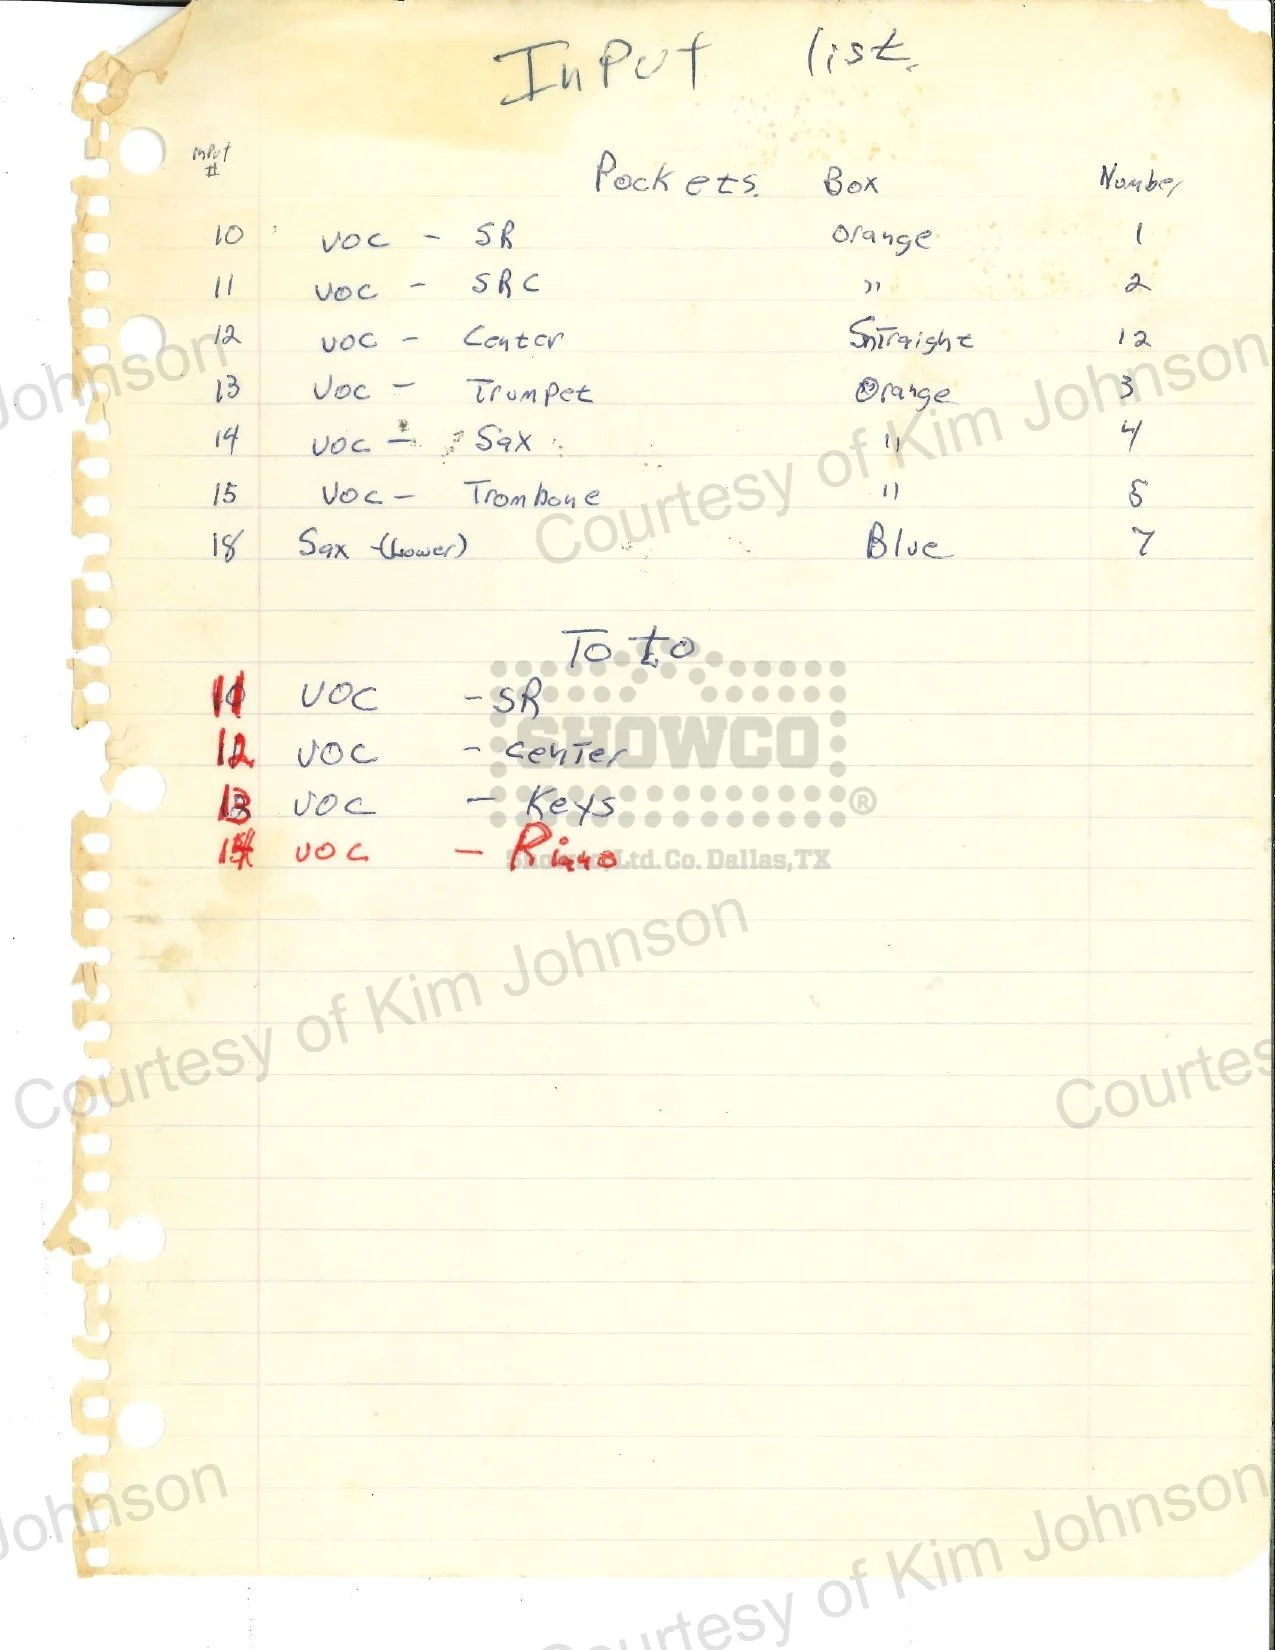 Input list.
input
#
Pockets. Box Number
10 VOC - SR Orange 1
11 VOC - SRC " 2
12 VOC - Center Straight 12
13 VOC - Trumpet Orange 3
14 VOC - Sax " 4
15 VOC - Trombone " 5
18 Sax - (Lower) Blue 7
Toto
11 VOC - SR
12 VOC - Center
13 VOC - Keys
VOC -
SHOWCO®
Showco, Ltd. Co. Dallas, TX
Johnson
Courtesy of Kim Johnson
Courtesy of Kim Johnson
Courtes
Johnson
urtesy of Kim Johnson